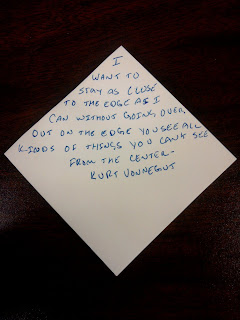 I
WANT TO
STAY AS CLOSE
TO THE EDGE AS I
CAN WITHOUT GOING OVER.
OUT ON THE EDGE YOU SEE ALL
KINDS OF THINGS YOU CAN'T SEE
FROM THE CENTER-
KURT VONNEGUT